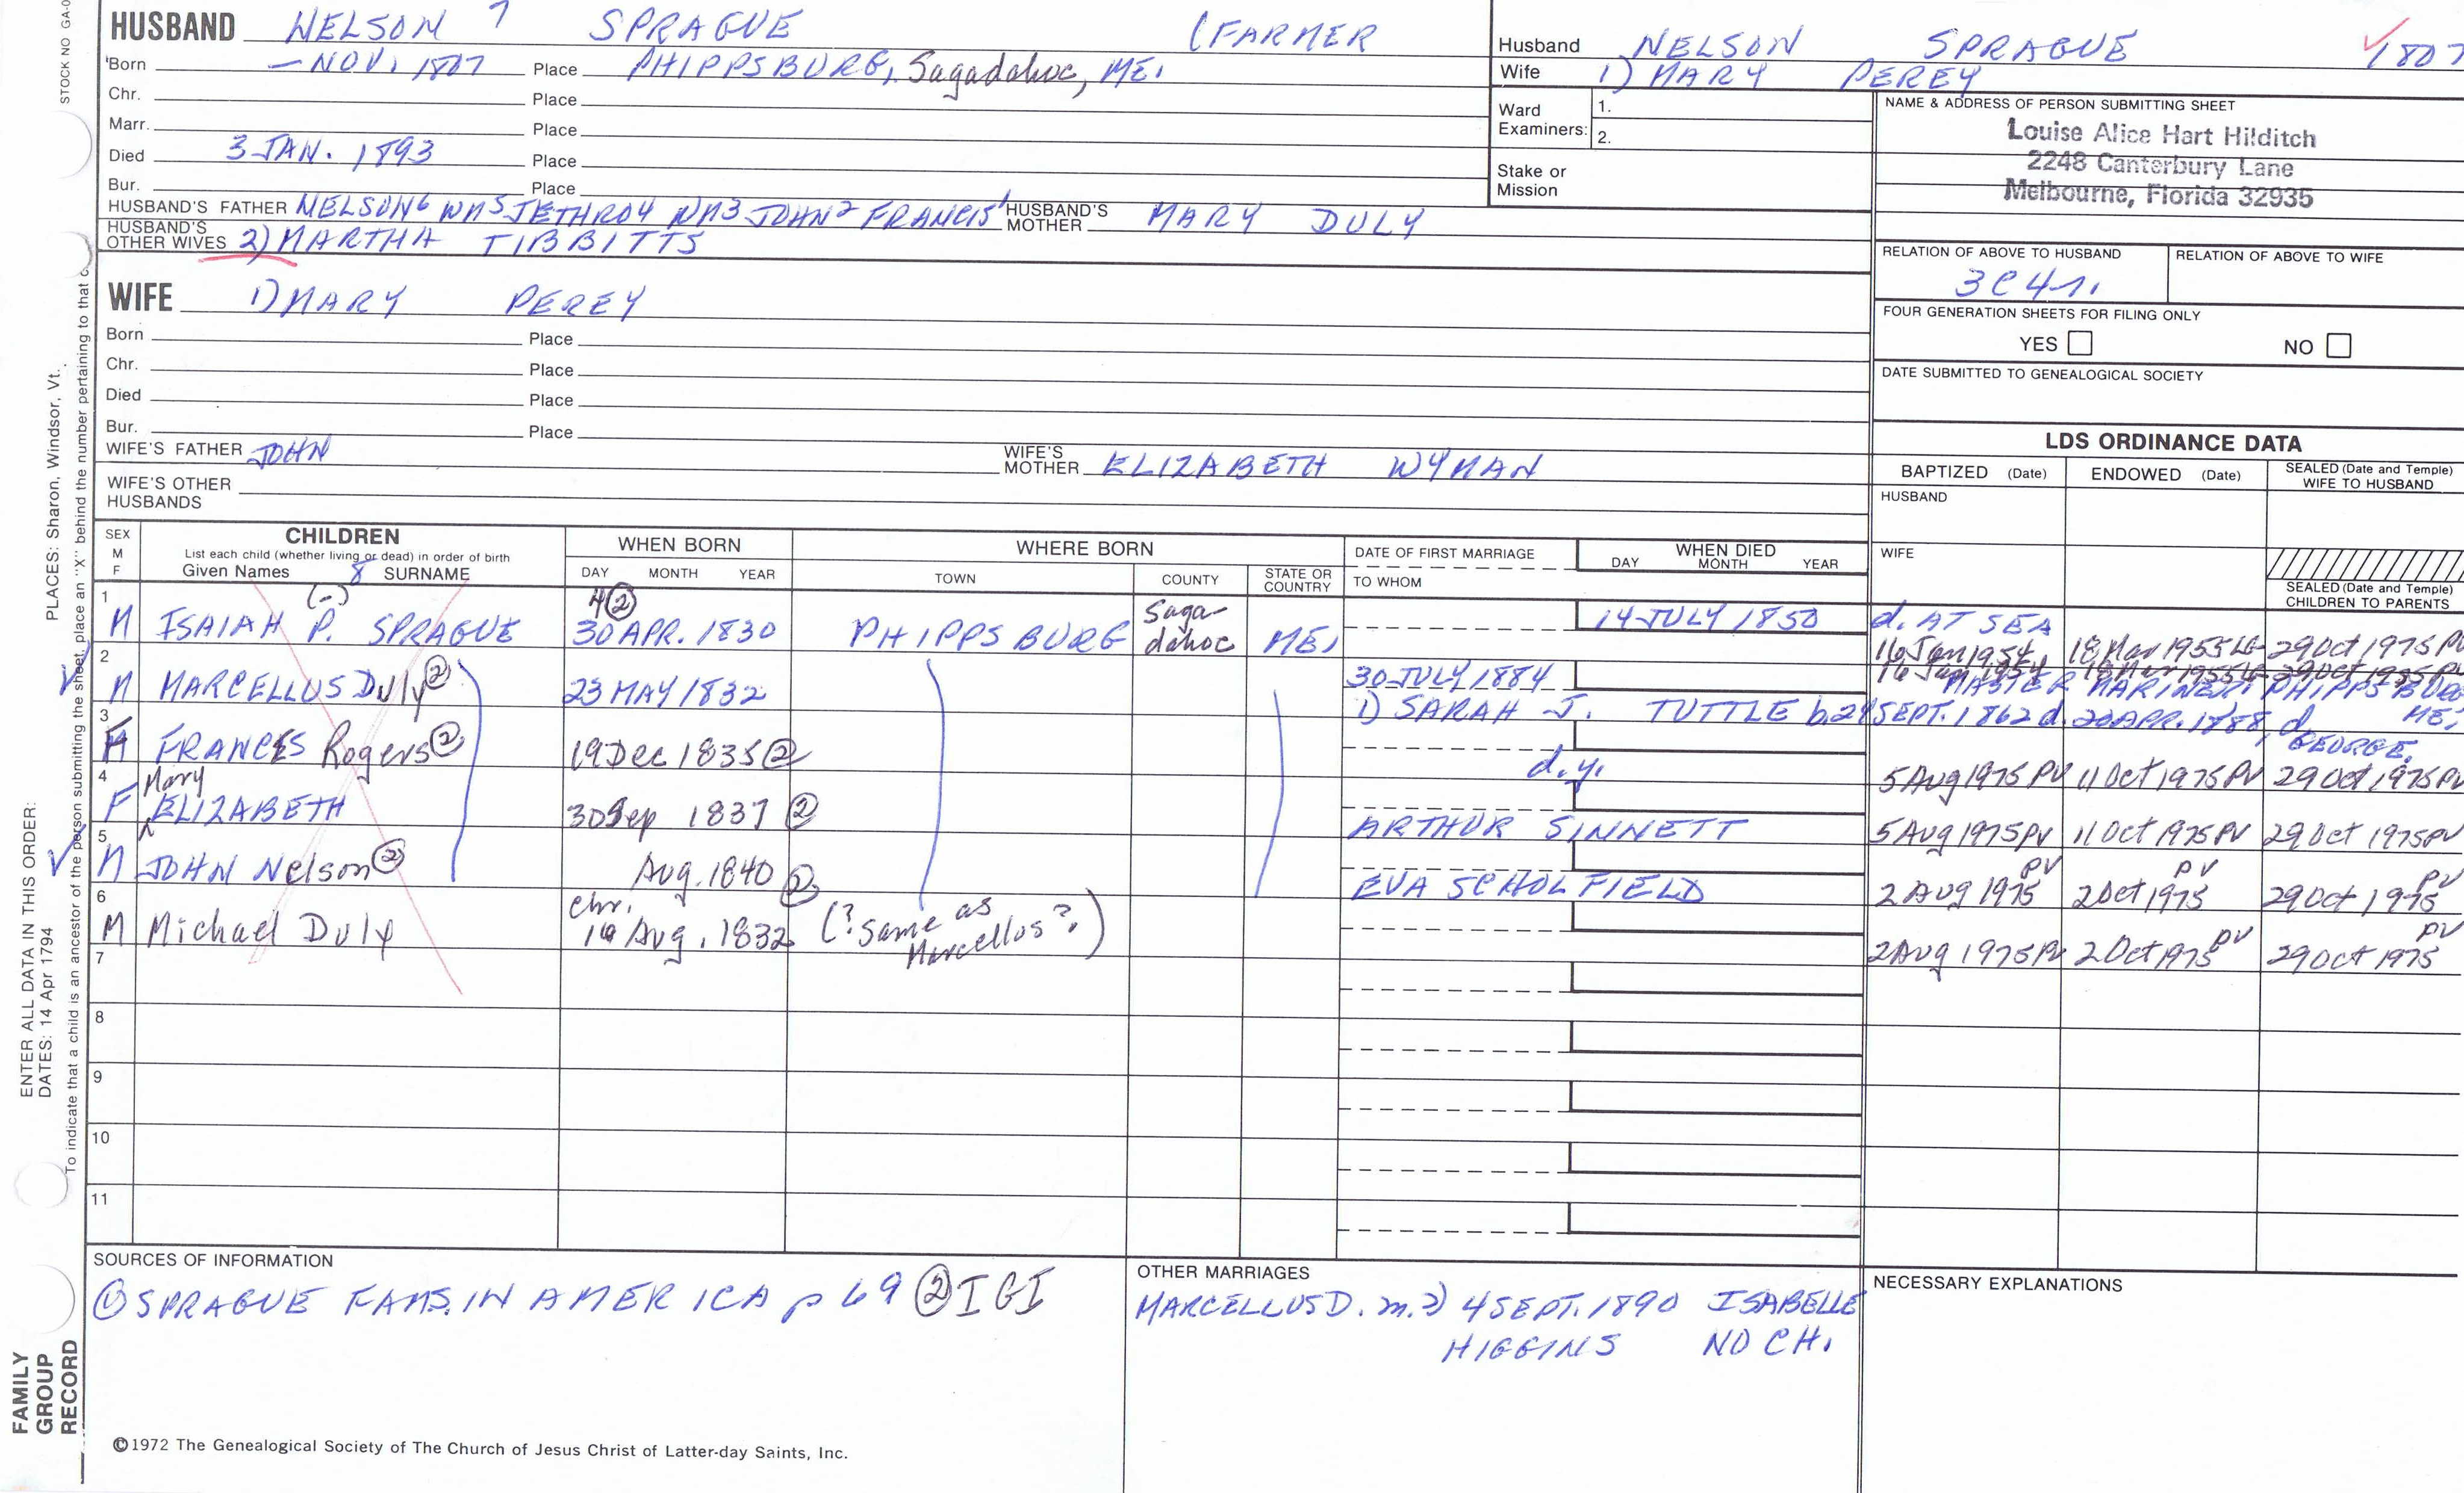 STOCK NO GA-0
HUSBAND NELSON 7 SPRAGUE (FARMER
Born – NOV. 1807 Place PHIPPSBURG, Sagadahoc, ME.
Chr. Place
Marr. Place
Died 3 JAN. 1893 Place
Bur. Place
HUSBAND'S FATHER NELSON6 WM5 JETHRO4 WM3 JOHN2 FRANCIS1 HUSBAND'S MOTHER MARY DULY
HUSBAND'S OTHER WIVES 2) MARTHA TIBBITTS
Husband NELSON SPRAGUE 1807
Wife 1) MARY PEREY
Ward Examiners: 1.
2.
Stake or Mission
NAME & ADDRESS OF PERSON SUBMITTING SHEET
Louise Alice Hart Hilditch
2248 Canterbury Lane
Melbourne, Florida 32935
RELATION OF ABOVE TO HUSBAND RELATION OF ABOVE TO WIFE
3C4r.
FOUR GENERATION SHEETS FOR FILING ONLY
YES NO
DATE SUBMITTED TO GENEALOGICAL SOCIETY
WIFE 1) MARY PEREY
Born Place
Chr. Place
Died Place
Bur. Place
WIFE'S FATHER JOHN WIFE'S MOTHER ELIZABETH WYMAN
WIFE'S OTHER HUSBANDS
LDS ORDINANCE DATA
BAPTIZED (Date) ENDOWED (Date) SEALED (Date and Temple) WIFE TO HUSBAND
HUSBAND
WIFE
SEALED (Date and Temple) CHILDREN TO PARENTS
SEX M F
CHILDREN
List each child (whether living or dead) in order of birth
Given Names 8 SURNAME
WHEN BORN
DAY MONTH YEAR
WHERE BORN
TOWN COUNTY STATE OR COUNTRY
DATE OF FIRST MARRIAGE
TO WHOM
WHEN DIED
DAY MONTH YEAR
1 M ISAIAH (-) P. SPRAGUE 4 ② 30 APR. 1830 PHIPPSBURG Sagadahoc ME. 14 JULY 1850 d. AT SEA
16 Jan 1954 18 Mar 1955 LG 29 Oct 1975 PV
2 M MARCELLUS Duly ② 23 MAY 1832 30 JULY 1884
16 Jan 1954 18 Mar 1955 LG 29 Oct 1975 PV
MASTER MARINER, PHIPPSBURG ME.
1) SARAH J. TUTTLE b. 24 SEPT. 1862 d. 20 APR. 1888, d GEORGE.
3 F FRANCES Rogers ② 19 Dec 1835 ② d.y. 5 Aug 1975 PV 11 Oct 1975 PV 29 Oct 1975 PV
4 F Mary ELIZABETH 30 Sep 1837 ② ARTHUR SINNETT 5 Aug 1975 PV 11 Oct 1975 PV 29 Oct 1975 PV
5 M JOHN Nelson ② Aug. 1840 ② EVA SCHOLFIELD 2 Aug 1975 PV 2 Oct 1975 PV 29 Oct 1975 PV
6 M Michael Duly chr. 19 Aug. 1832 (? same as Marcellus?) 2 Aug 1975 PV 2 Oct 1975 PV 29 Oct 1975 PV
7
8
9
10
11
SOURCES OF INFORMATION
① SPRAGUE FAMS. IN AMERICA p 69 ② IGI
OTHER MARRIAGES
MARCELLUS D. m. 2) 4 SEPT. 1890 ISABELLE
HIGGINS NO CH.
NECESSARY EXPLANATIONS
©1972 The Genealogical Society of The Church of Jesus Christ of Latter-day Saints, Inc.
FAMILY GROUP RECORD
ENTER ALL DATA IN THIS ORDER:
DATES: 14 Apr 1794 PLACES: Sharon, Windsor, Vt.
To indicate that a child is an ancestor of the person submitting the sheet, place an "X" behind the number pertaining to that c